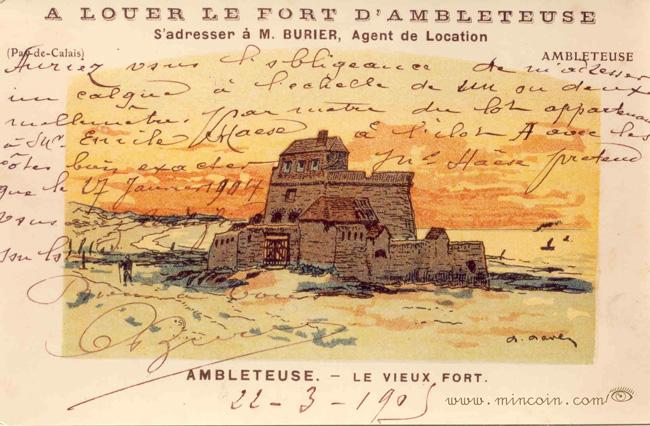 A LOUER LE FORT D'AMBLETEUSE
S'adresser à M. BURIER, Agent de Location
(Pas-de-Calais)
AMBLETEUSE
Auriez vous l'obligeance de m'adresser
un calque à l'échelle de un ou deux
millimètres par mètre du lot appartenant
à Emile Haese à l'ilot A avec les
côtes bien exactes Haese prétend
que le 27 Janvier 1904
vous
sur les
AMBLETEUSE. — LE VIEUX FORT.
22-3-1905
www.mincoin.com